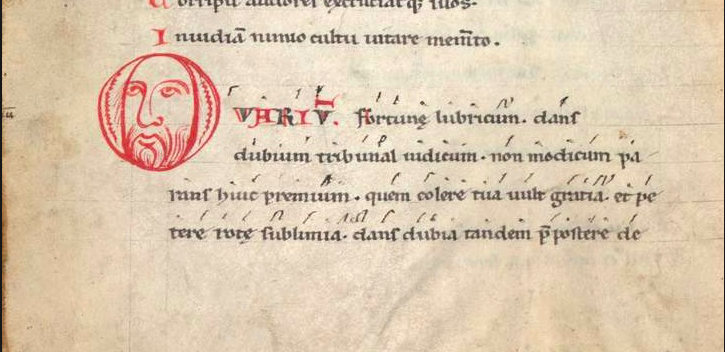 Corripit auctores excruciatq; suos.
Inuidiā nimio cultu uitare mem̄to.
O VARIV̄. fortunę lubricum. dans
dubium tribunal iudicum. non modicum pa
rans huic premium. quem colere tua uult gratia. et pe
tere rotę sublimia. dans dubia tandem p̄postere de